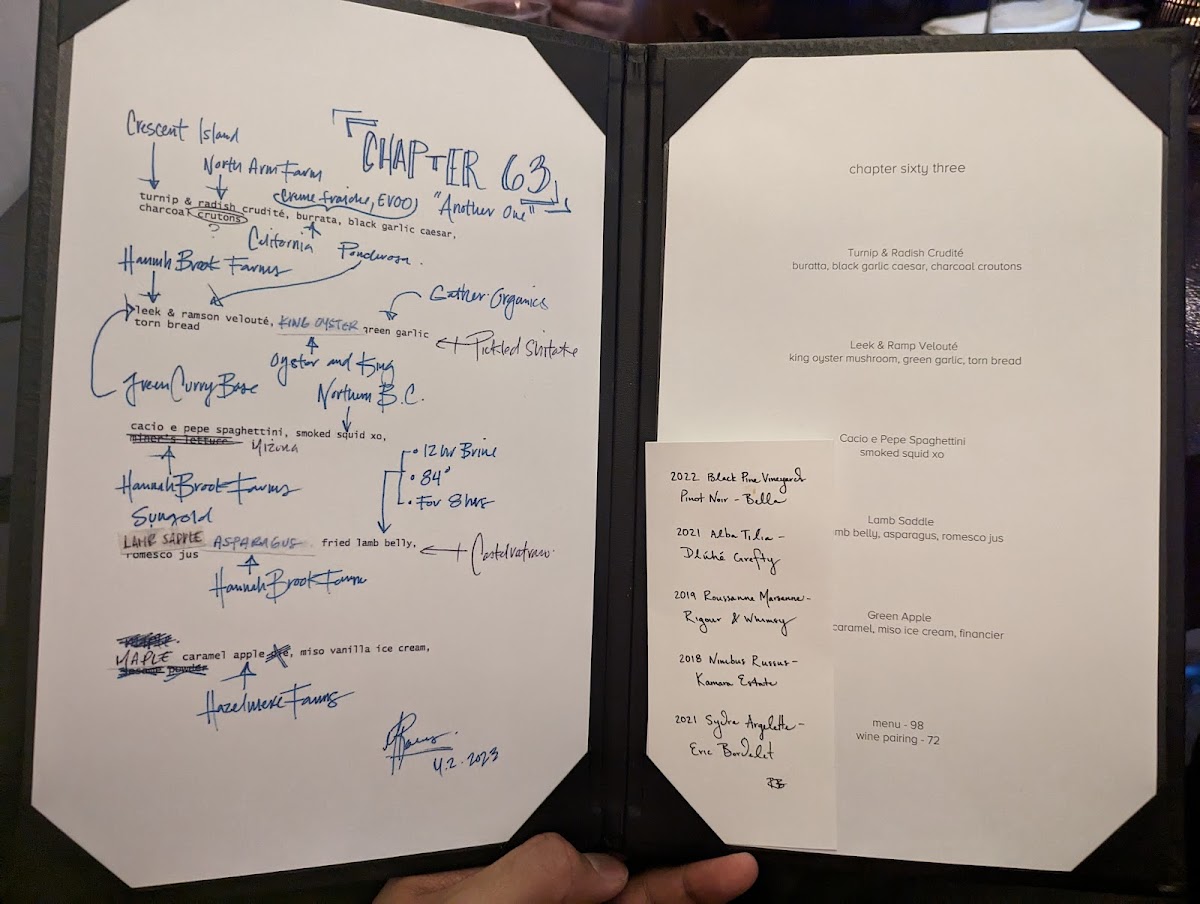 Crescent Island
North Arm Farm
「CHAPTER 63」
"Another One"
Creme fraiche, EVOO
turnip & radish crudité, burrata, black garlic caesar,
charcoal crutons
?
California
Ponderosa.
Hannah Brook Farms
Gather Organics
leek & ramson velouté, KING OYSTER green garlic
torn bread
+ Pickled Shitake
Oyster and King
Green Curry Base
Northern B.C.
cacio e pepe spaghettini, smoked squid xo,
miner's lettuce Mizuna
• 12 hr Brine
• 84°
• For 8 hrs
Hannah Brook Farms
Sungold
LAMB SADDLE ASPARAGUS fried lamb belly,
romesco jus
+ Castelvetrano
Hannah Brook Farms
MAPLE caramel apple pie, miso vanilla ice cream,
powder
Hazelmere Farms
4.2.2023
chapter sixty three
Turnip & Radish Crudité
buratta, black garlic caesar, charcoal croutons
Leek & Ramp Velouté
king oyster mushroom, green garlic, torn bread
Cacio e Pepe Spaghettini
smoked squid xo
Lamb Saddle
mb belly, asparagus, romesco jus
Green Apple
caramel, miso ice cream, financier
menu - 98
wine pairing - 72
2022 Black Pine Vineyard
Pinot Noir - Bella
2021 Alba Tilia -
Dlúhé Grefty
2019 Roussanne Marsanne -
Rigour & Whimsy
2018 Nimbus Russus -
Kamara Estate
2021 Sydre Argelette -
Eric Bordelet